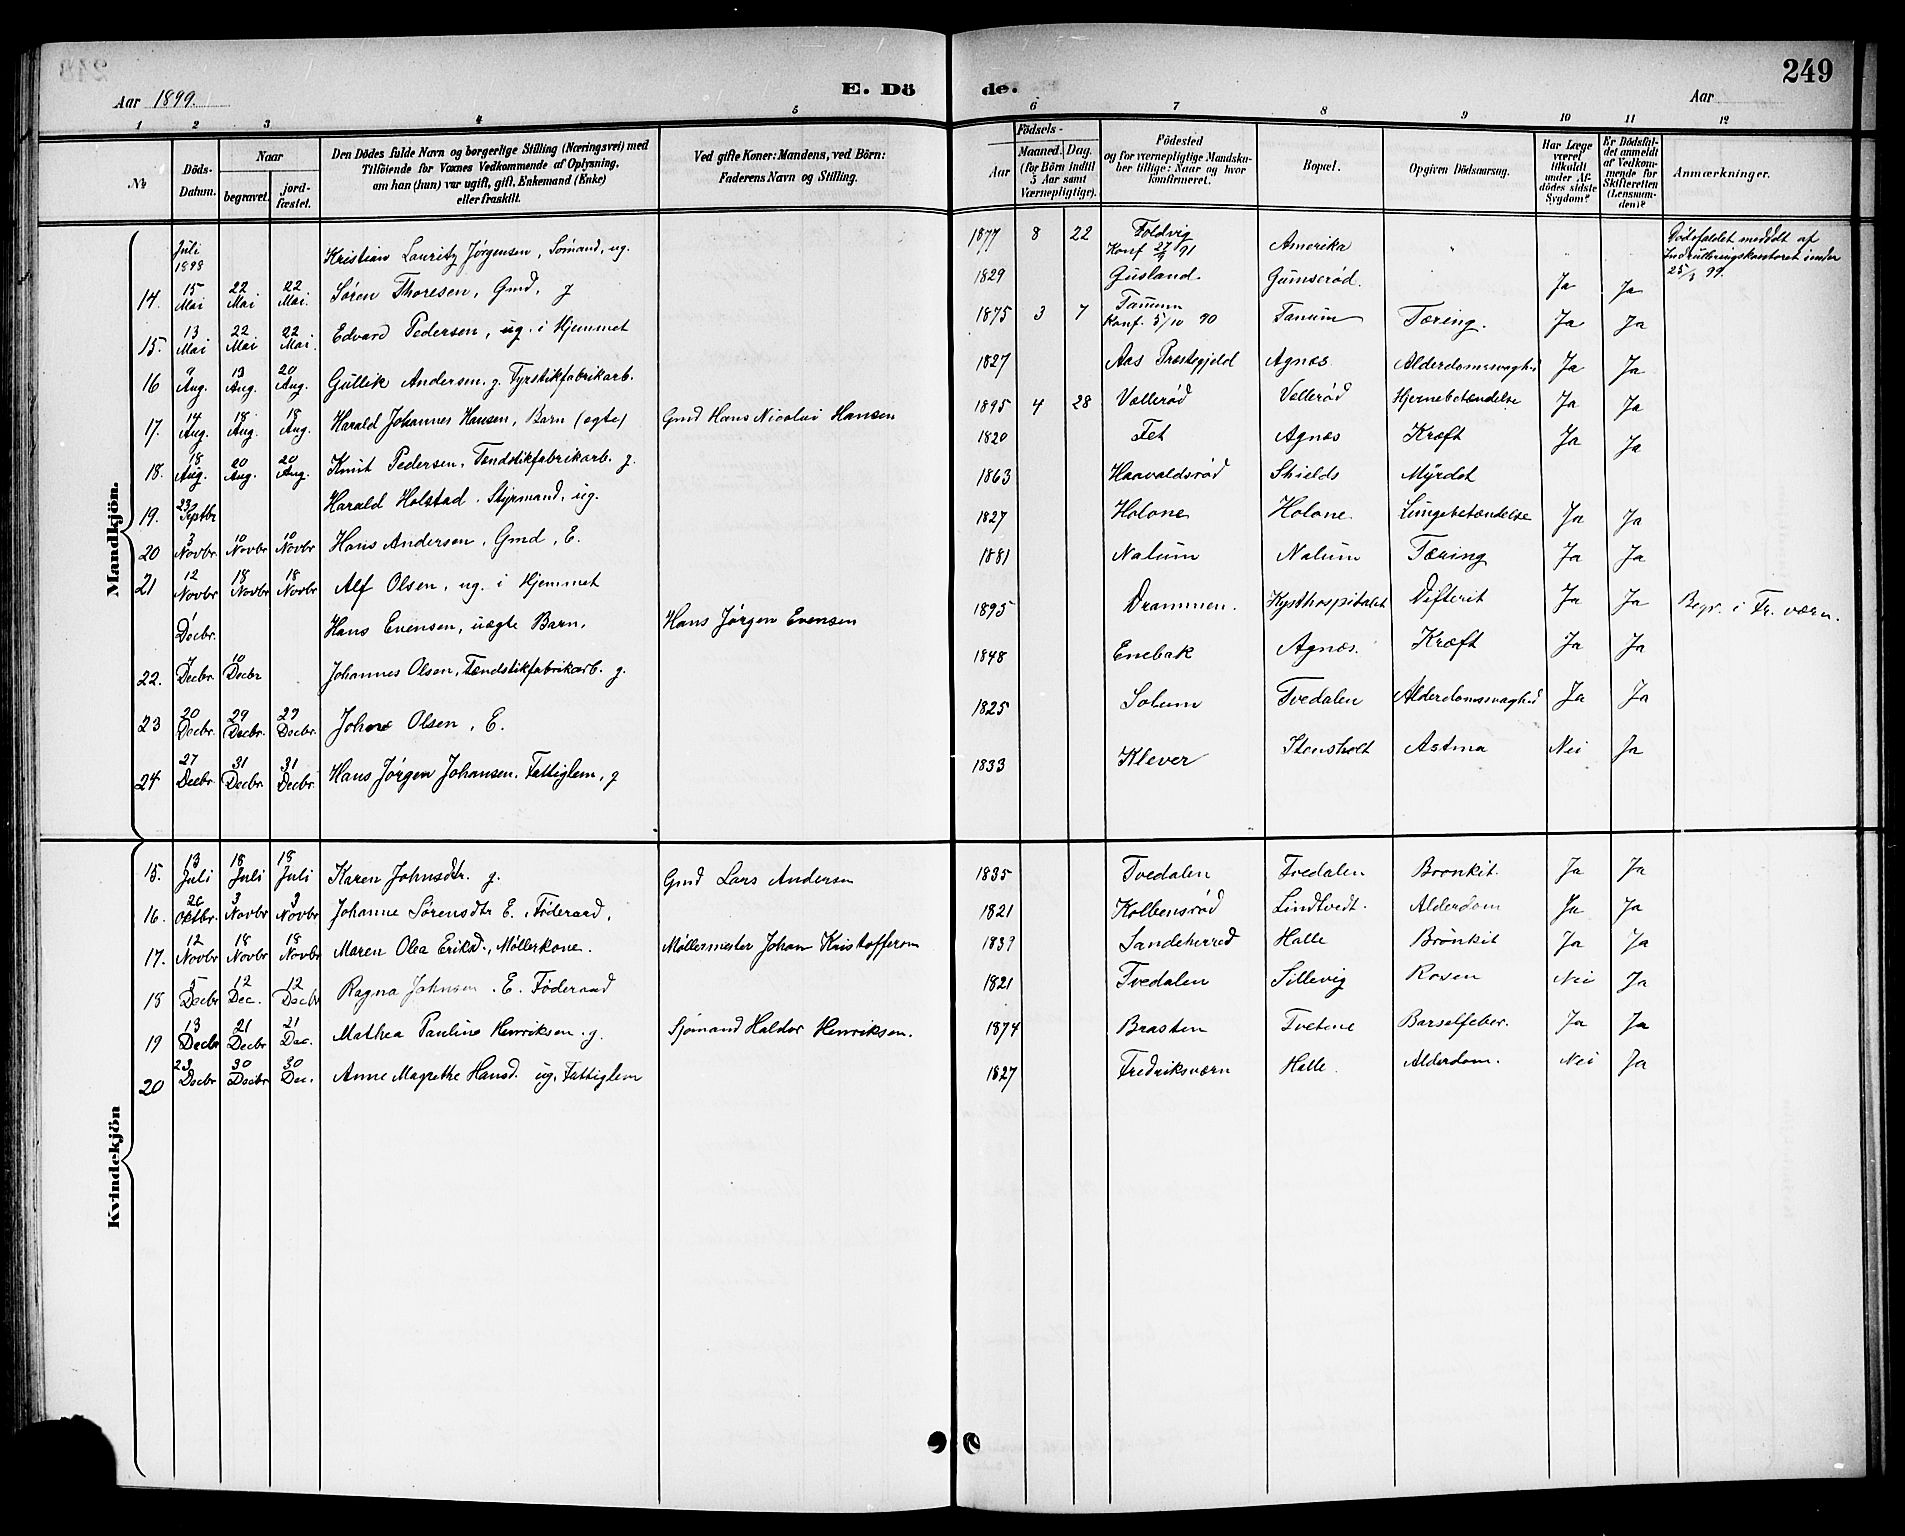 249
Aar 1899.
E. Dö de.
Aar
1 2 3 4 5 6 7 8 9 10 11 12
No
Döds-Datum.
Naar
begravet.
jord-fæstet.
Den Dödes fulde Navn og borgerlige Stilling (Næringsvei) med
Tilföiende for Voxnes Vedkommende af Oplysning,
om han (hun) var ugift, gift, Enkemand (Enke)
eller fraskilt.
Ved gifte Koner: Mandens, ved Börn:
Faderens Navn og Stilling.
Födsels-
Aar
Maaned. Dag.
(for Börn indtil
5 Aar samt
Værnepligtige).
Födested
og for værnepligtige Mandska-
ber tillige: Naar og hvor
konfirmeret.
Bopæl.
Opgiven Dödsaarsag.
Har Læge
været
tilkaldt
under Af-
dödes sidste
Sygdom?
Er Dödsfal-
det anmeldt
af Vedkom-
mende for
Skifteretten
(Lensman-
den)?
Anmærkninger.
Mandkjön.
Juli 1898 Kristian Lauritz Jørgensen, Sømand, ug. 1877 8 22 Foldvig Konf 27/9 91 Amerika " " " Dödsfaldet meddelt af Indrulleringskontoret under 25/3 99.
14. 15 Mai 22 Mai 22 Mai. Søren Thoresen, Gmd, g 1829 Gusland Gumserød. Ja Ja
15. 13 Mai 22 Mai 22 Mai. Edvard Pedersen, ug. i Hjemmet 1875 3 7 Tanum Konf. 5/10 90 Tanum Tæring. Ja Ja
16 9 Aug. 13 Aug. 20 Aug. Gullik Andersen. g. Fyrstikfabrikarb. 1827 Aas Præstegjeld Agnes. Alderdomssvaghed Ja Ja
17. 14 Aug. 18 Aug. 18 Aug. Harald Johannes Hansen, Barn (ægte) Gmd Hans Nicolai Hansen 1895 4 28 Vallerød Vallerød Hjernebetændelse Ja Ja
18. 18 Aug. 20 Aug. 20 Aug. Knut Pedersen, Tændstikfabrikarb. g. 1820 Fet Agnes Kræft Ja Ja
19. 23 Septbr Harald Holstad. Styrmand, ug. 1863 Haavaldsrød Shields Myrdet
20 3 Novbr 10 Novbr 10 Novbr Hans Andersen, Gmd, E. 1827 Holone Holone Lungebetændelse Ja Ja
21 12 Novbr 18 Novbr 18 Novbr Alf Olsen, ug. i Hjemmet 1881 Nalum Nalum Tæring Ja Ja
Decbr. Hans Evensen, uægte Barn, Hans Jørgen Evensen 1895 Drammen. Kysthospitalet Difterit Ja Ja Begr. i Fr. værn.
22. 7 Decbr. 10 Decbr Johannes Olsen, Tændstikfabrikarb. g. 1848 Enebak Agnes. Kræft Ja Ja
23 20 Decbr. 29 Decbr. 29 Decbr. Johan Olsen, E. 1825 Solum Tvedalen Alderdomssvaghed Ja Ja
24 27 Decbr. 31 Decbr. 31 Decbr. Hans Jørgen Johansen. Fattiglem, g 1833 Klever Stensholt Astma Nei Ja
Kvindekjön
15. 13 Juli 18 Juli 18 Juli Karen Johnsdtr. g. Gmd Lars Andersen 1835 Tvedalen Tvedalen Bronkit. Ja Ja
16. 26 Oktbr. 3 Novbr 3 Novbr Johanne Sørensdtr E., Føderaad, 1821 Kolbensrød Lindtvedt. Alderdom Ja Ja
17. 12 Novbr 18 Novbr 18 Novbr Maren Olea Eriksd., Møllerkone. Møllermester Johan Kristofferson 1839 Sandeherred Halle Brønkit Ja Ja
18 5 Decbr 12 Dec. 12 Decbr Ragna Johnsen. E. Føderaad 1821 Tvedalen Sillevig Rosen Nei Ja
19 13 Decbr 21 Decbr 21 Dec. Mathea Pauline Henriksen. g. Sjømand Haldor Henriksen. 1874 Brasten Tvetene Barselfeber. Ja Ja
20 23 Decbr 30 Decbr 30 Dec. Anne Magrethe Hansd. ug. Fattiglem 1827 Fredriksværn Halle. Alderdom. Nei Ja